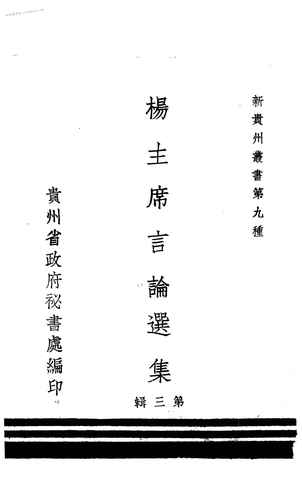 新貴州叢書第九種
楊主席言論選集
第三輯
貴州省政府祕書處編印